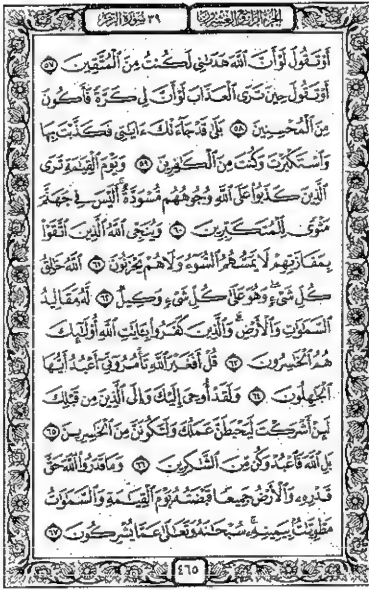 الجزء الرابع والعشرون ٣٩ سورة الزمر
أَوْ تَقُولَ لَوْ أَنَّ ٱللَّهَ هَدَىٰنِى لَكُنتُ مِنَ ٱلْمُتَّقِينَ ٥٧
أَوْ تَقُولَ حِينَ تَرَى ٱلْعَذَابَ لَوْ أَنَّ لِى كَرَّةً فَأَكُونَ
مِنَ ٱلْمُحْسِنِينَ ٥٨ بَلَىٰ قَدْ جَآءَتْكَ ءَايَٰتِى فَكَذَّبْتَ بِهَا
وَٱسْتَكْبَرْتَ وَكُنتَ مِنَ ٱلْكَٰفِرِينَ ٥٩ وَيَوْمَ ٱلْقِيَٰمَةِ تَرَى
ٱلَّذِينَ كَذَبُوا۟ عَلَى ٱللَّهِ وُجُوهُهُم مُّسْوَدَّةٌ أَلَيْسَ فِى جَهَنَّمَ
مَثْوًى لِّلْمُتَكَبِّرِينَ ٦٠ وَيُنَجِّى ٱللَّهُ ٱلَّذِينَ ٱتَّقَوْا۟
بِمَفَازَتِهِمْ لَا يَمَسُّهُمُ ٱلسُّوٓءُ وَلَا هُمْ يَحْزَنُونَ ٦١ ٱللَّهُ خَٰلِقُ
كُلِّ شَىْءٍ وَهُوَ عَلَىٰ كُلِّ شَىْءٍ وَكِيلٌ ٦٢ لَّهُۥ مَقَالِيدُ
ٱلسَّمَٰوَٰتِ وَٱلْأَرْضِ وَٱلَّذِينَ كَفَرُوا۟ بِـَٔايَٰتِ ٱللَّهِ أُو۟لَٰٓئِكَ
هُمُ ٱلْخَٰسِرُونَ ٦٣ قُلْ أَفَغَيْرَ ٱللَّهِ تَأْمُرُوٓنِّىٓ أَعْبُدُ أَيُّهَا
ٱلْجَٰهِلُونَ ٦٤ وَلَقَدْ أُوحِىَ إِلَيْكَ وَإِلَى ٱلَّذِينَ مِن قَبْلِكَ
لَئِنْ أَشْرَكْتَ لَيَحْبَطَنَّ عَمَلُكَ وَلَتَكُونَنَّ مِنَ ٱلْخَٰسِرِينَ ٦٥
بَلِ ٱللَّهَ فَٱعْبُدْ وَكُن مِّنَ ٱلشَّٰكِرِينَ ٦٦ وَمَا قَدَرُوا۟ ٱللَّهَ حَقَّ
قَدْرِهِۦ وَٱلْأَرْضُ جَمِيعًا قَبْضَتُهُۥ يَوْمَ ٱلْقِيَٰمَةِ وَٱلسَّمَٰوَٰتُ
مَطْوِيَّٰتٌۢ بِيَمِينِهِۦ سُبْحَٰنَهُۥ وَتَعَٰلَىٰ عَمَّا يُشْرِكُونَ ٦٧
٤٦٥